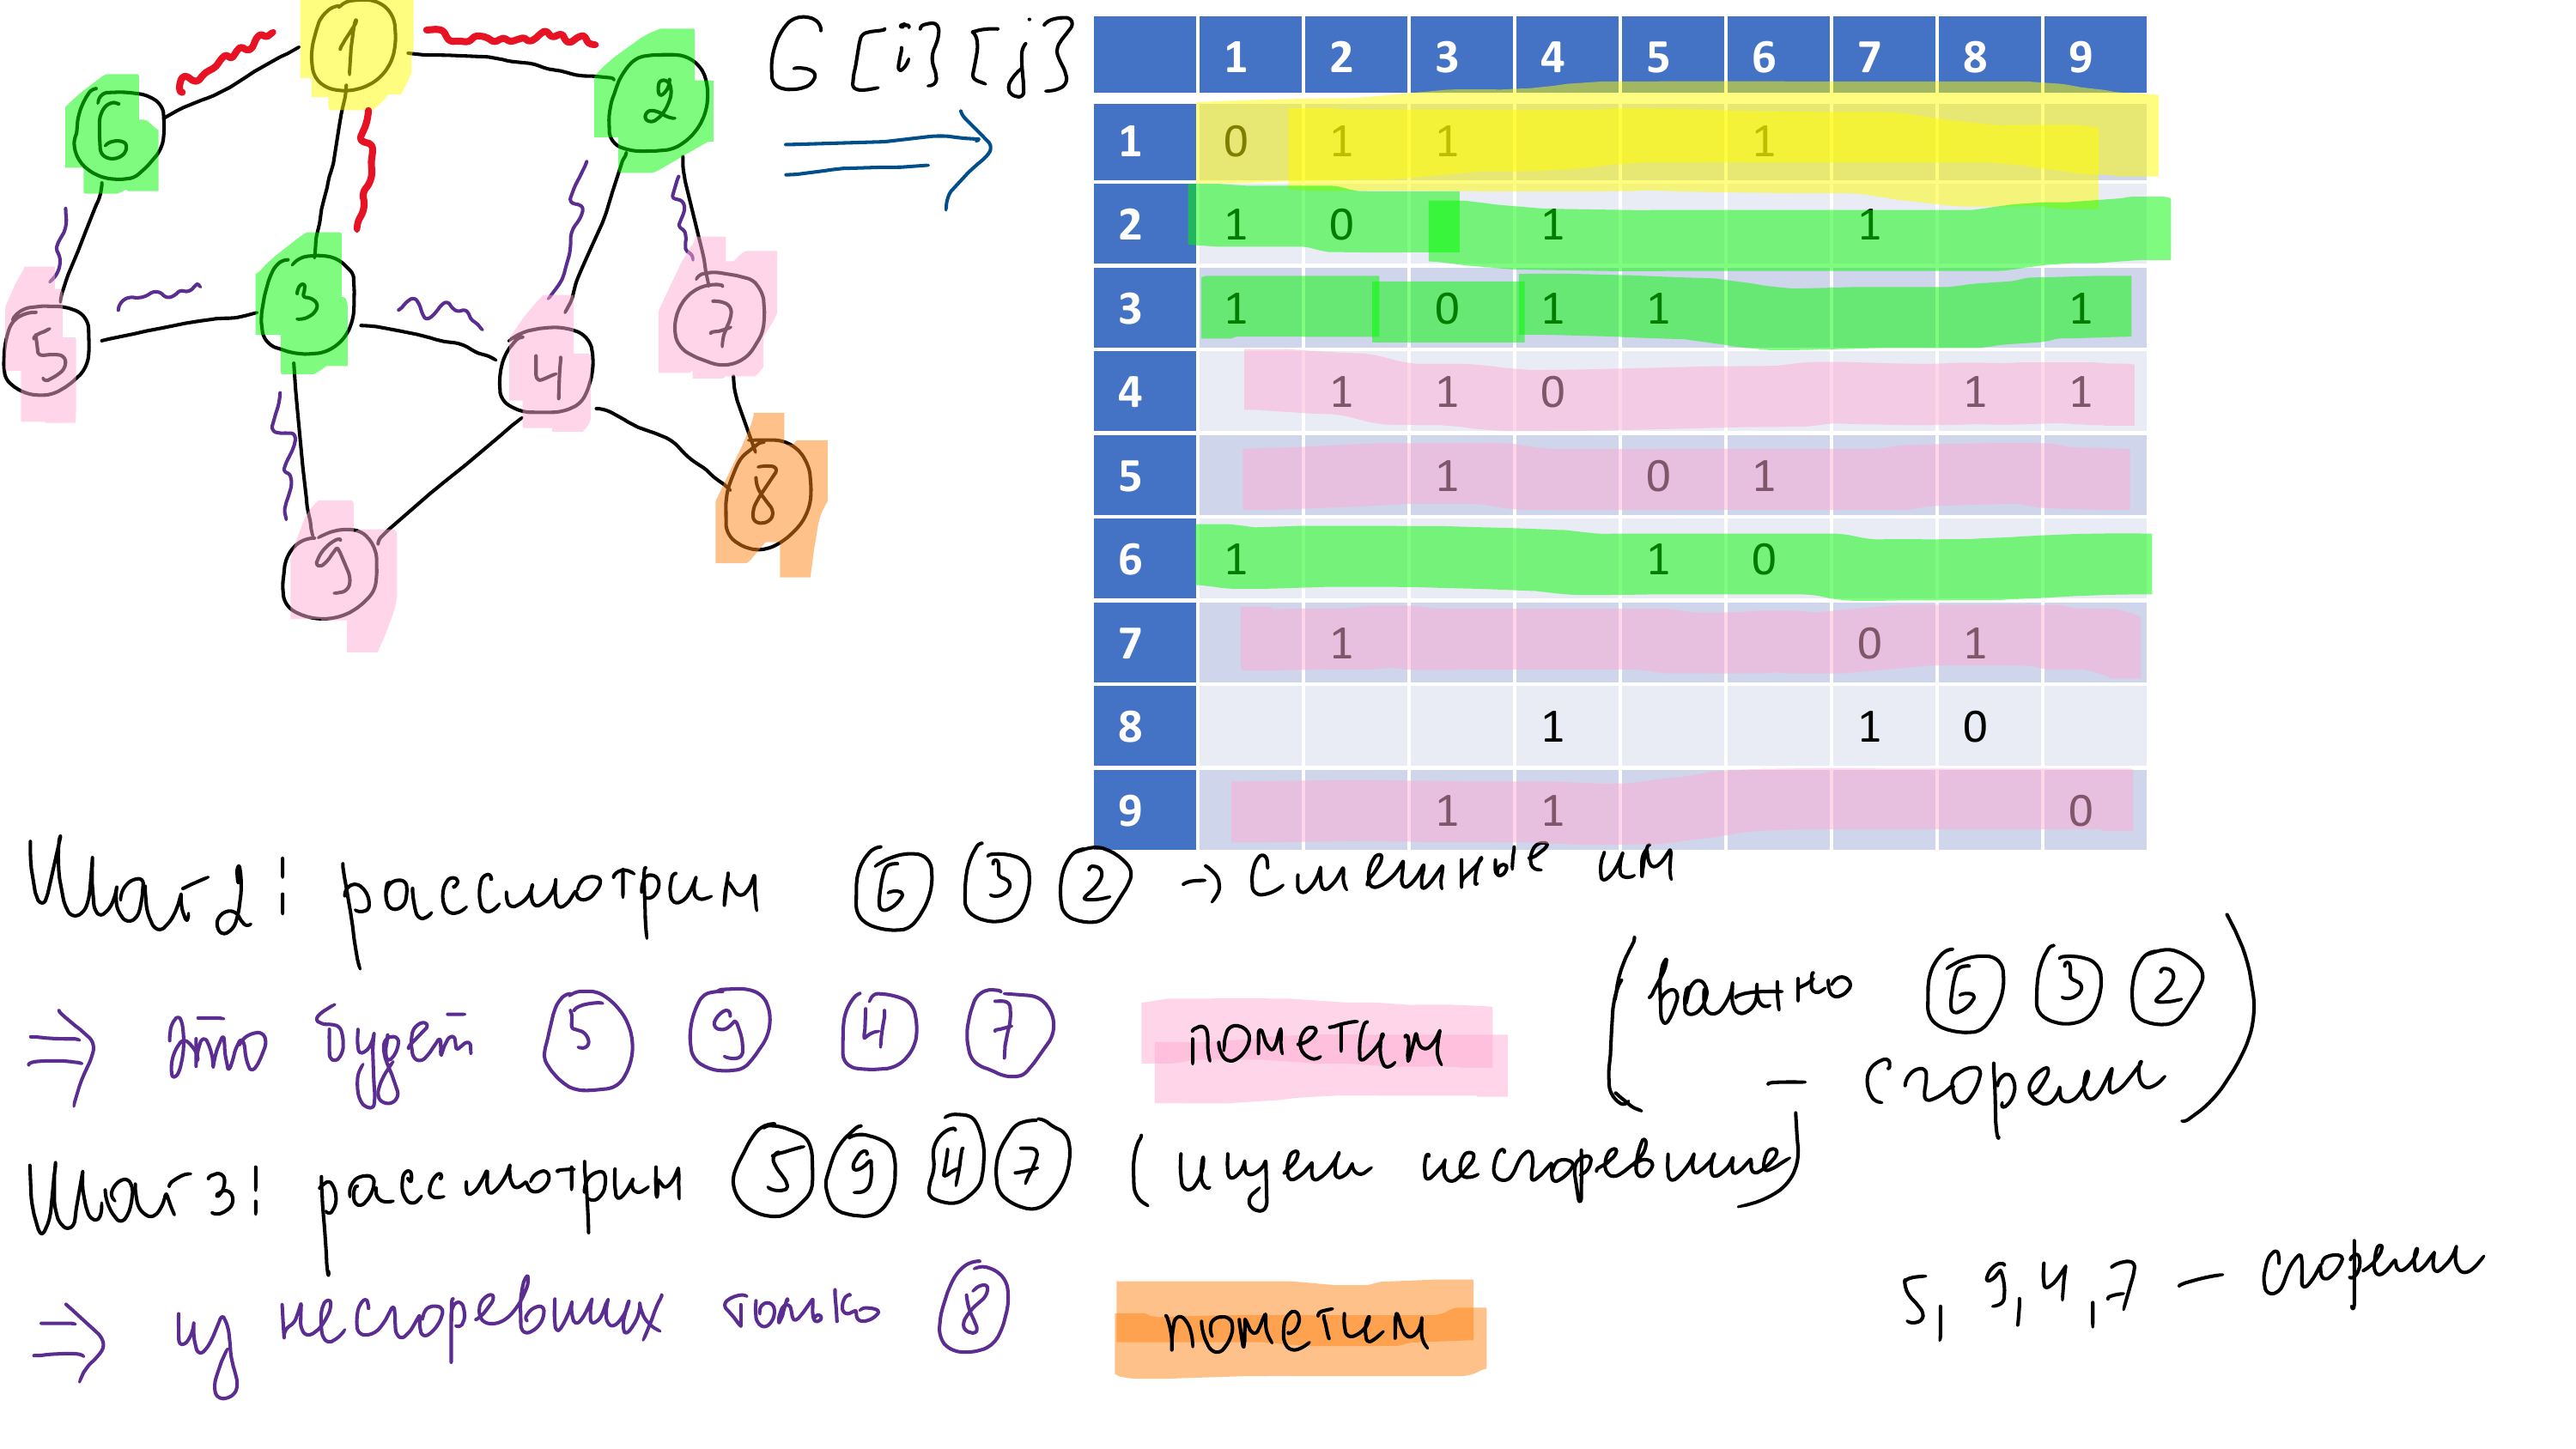 1
2
6
3
5
4
7
8
9
G [i] [j]
1 2 3 4 5 6 7 8 9
1 0 1 1 1
2 1 0 1 1
3 1 0 1 1 1
4 1 1 0 1 1
5 1 0 1
6 1 1 0
7 1 0 1
8 1 1 0
9 1 1 0
Шаг 2: рассмотрим 6 3 2 → смежные им
⇒ это будет 5 9 4 7 пометим
(важно 6 3 2
– сгорели)
Шаг 3: рассмотрим 5 9 4 7 (ищем несгоревшие)
⇒ из несгоревших только 8 пометим
5, 9, 4, 7 – сгорели